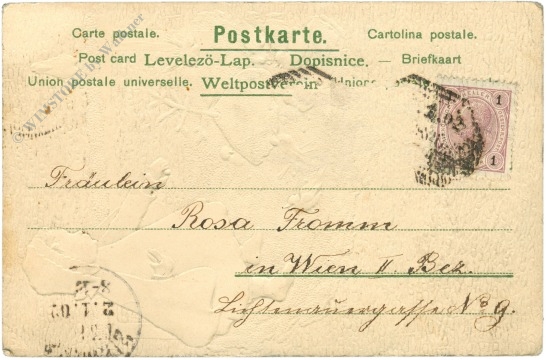 Carte postale. Postkarte. Cartolina postale.
Post card Levelező-Lap. Dopisnice. — Briefkaart
Union postale universelle. Weltpostverein Unione
© WINSTORE by Wallner
1
1
Fräulein
Rosa Fromm
in Wien II. Bez.
Lichtenauergasse No 9.